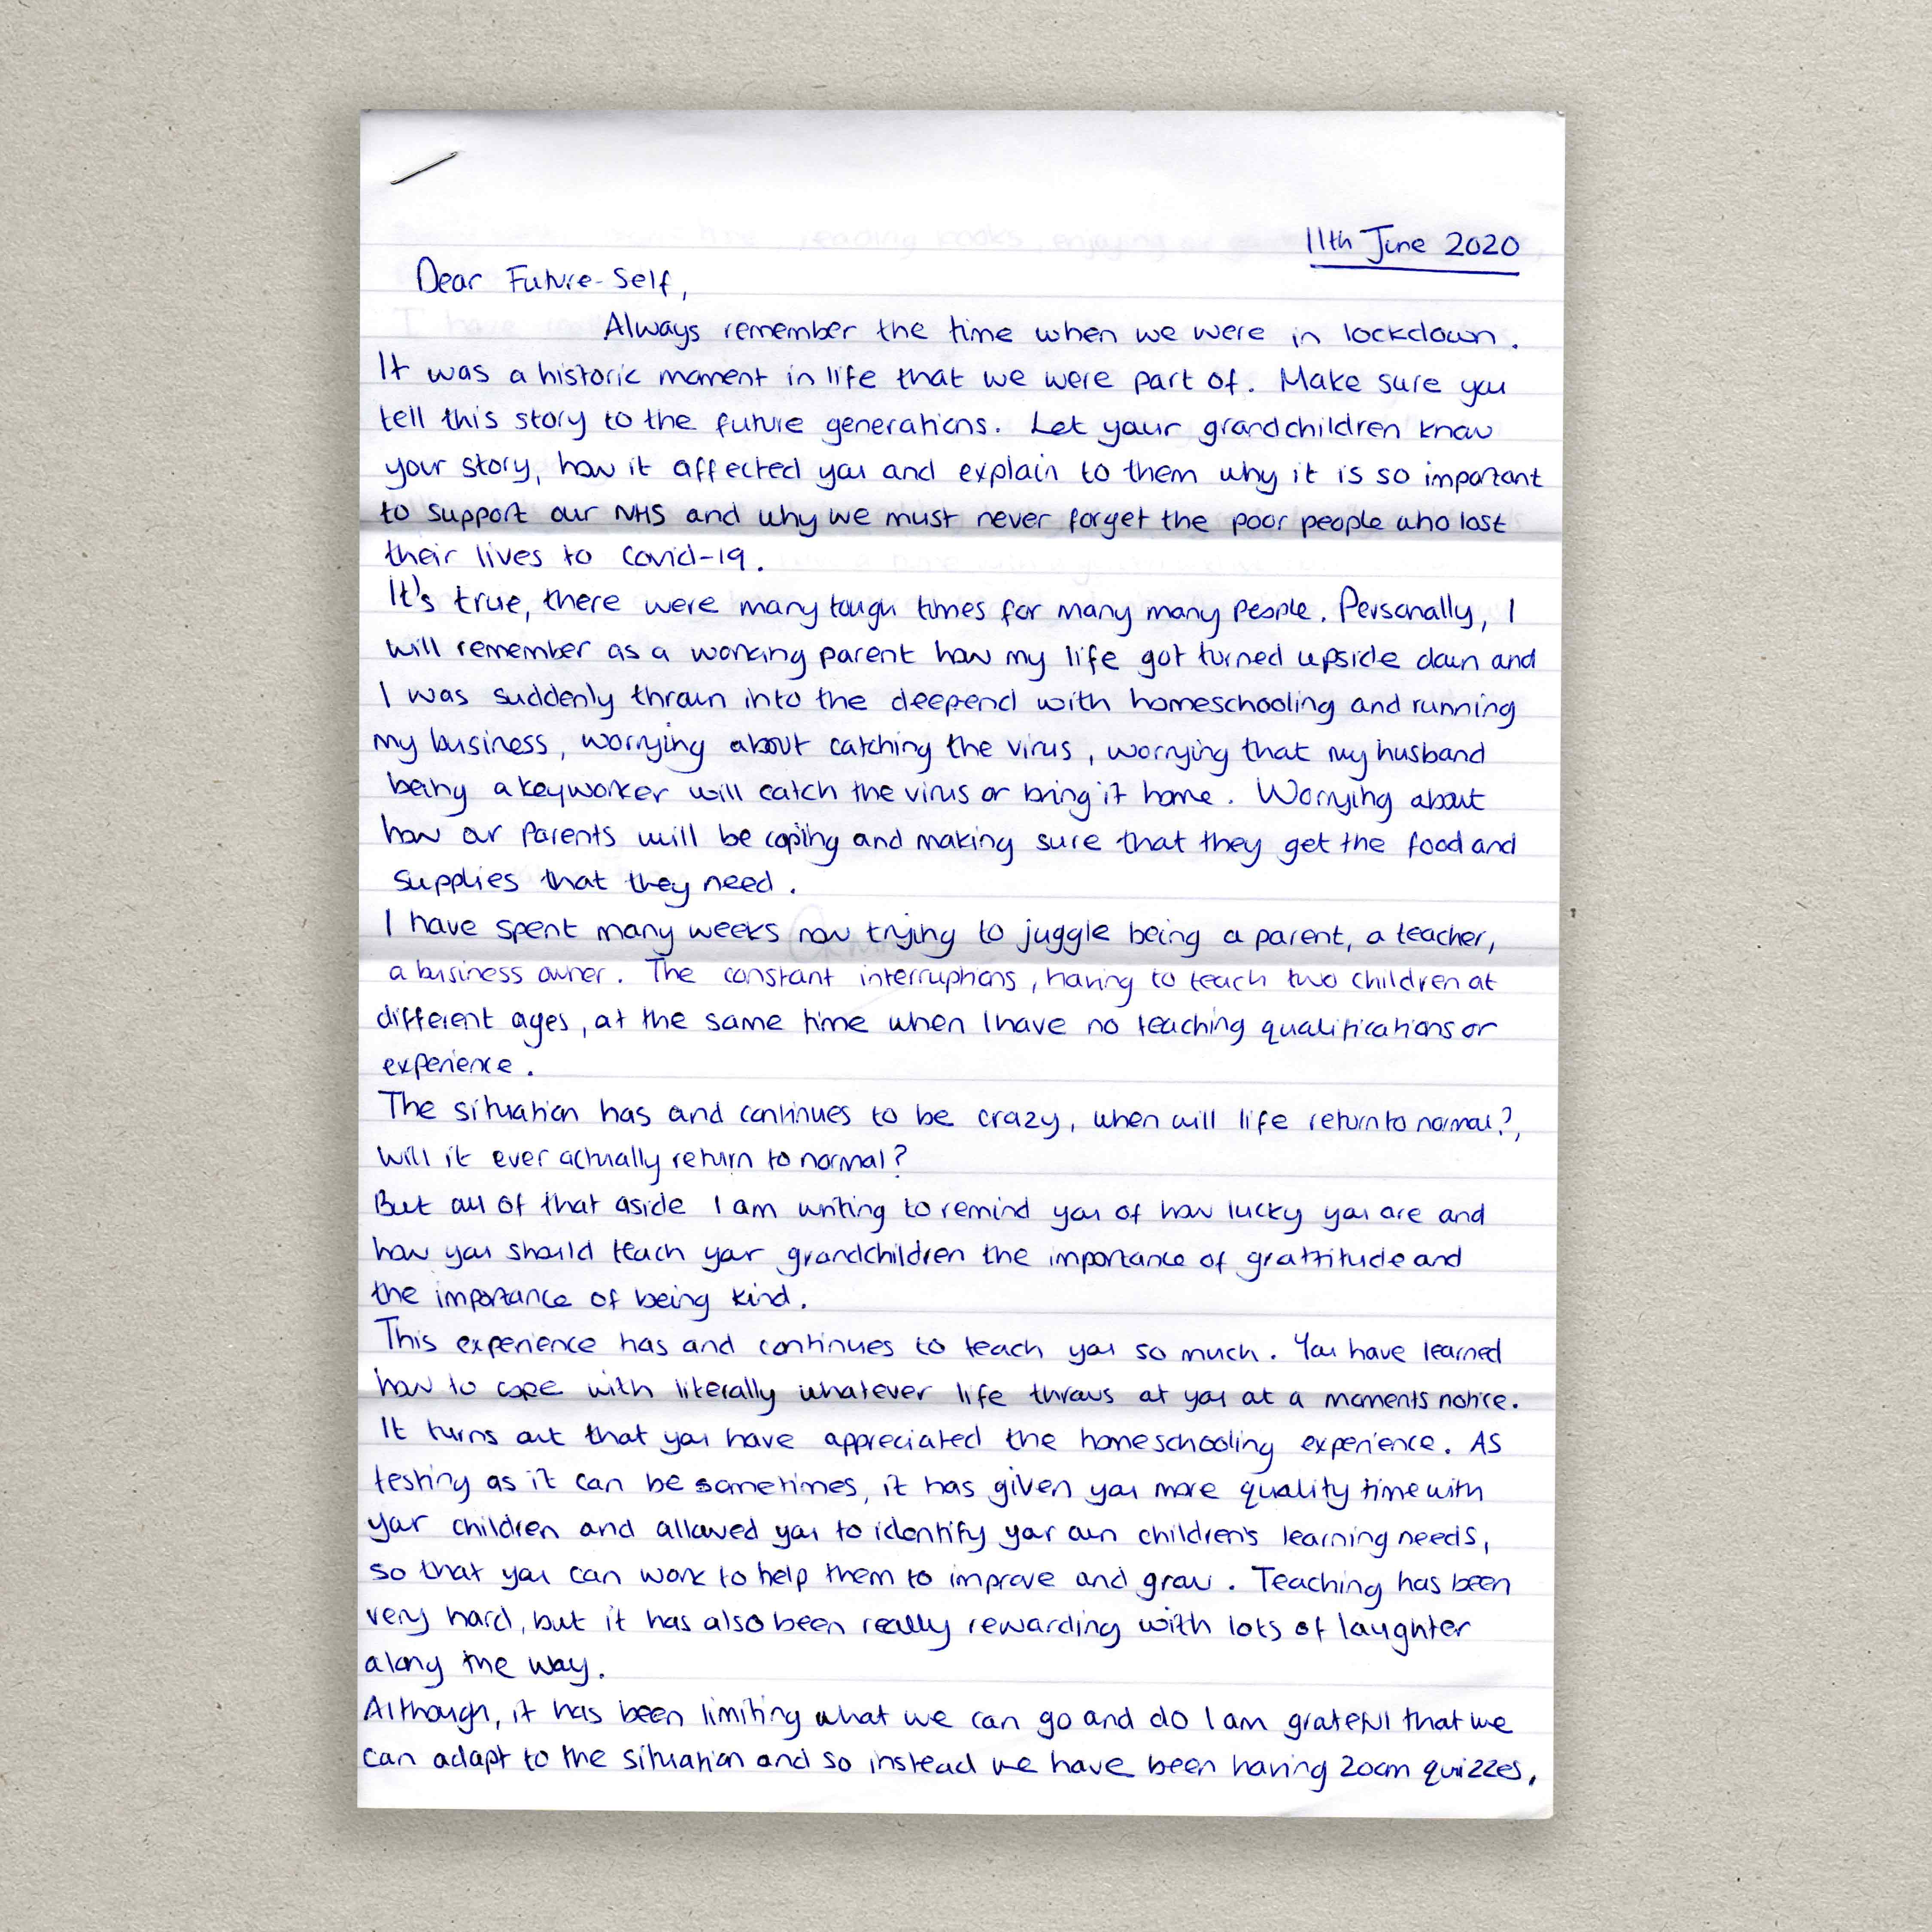 11th June 2020
Dear Future-Self,
Always remember the time when we were in lockdown.
It was a historic moment in life that we were part of. Make sure you
tell this story to the future generations. Let your grandchildren know
your story, how it affected you and explain to them why it is so important
to support our NHS and why we must never forget the poor people who lost
their lives to Covid-19.
It's true, there were many tough times for many many people. Personally, I
will remember as a working parent how my life got turned upside down and
I was suddenly thrown into the deepend with homeschooling and running
my business, worrying about catching the virus, worrying that my husband
being a keyworker will catch the virus or bring it home. Worrying about
how our parents will be coping and making sure that they get the food and
supplies that they need.
I have spent many weeks now trying to juggle being a parent, a teacher,
a business owner. The constant interruptions, having to teach two children at
different ages, at the same time when I have no teaching qualifications or
experience.
The situation has and continues to be crazy, when will life return to normal?,
will it ever actually return to normal?
But all of that aside I am writing to remind you of how lucky you are and
how you should teach your grandchildren the importance of grattitude and
the importance of being kind.
This experience has and continues to teach you so much. You have learned
how to cope with literally whatever life throws at you at a moments notice.
It turns out that you have appreciated the homeschooling experience. As
testing as it can be sometimes, it has given you more quality time with
your children and allowed you to identify your own children's learning needs,
so that you can work to help them to improve and grow. Teaching has been
very hard, but it has also been really rewarding with lots of laughter
along the way.
Although, it has been limiting what we can go and do I am grateful that we
can adapt to the situation and so instead we have been having zoom quizzes,